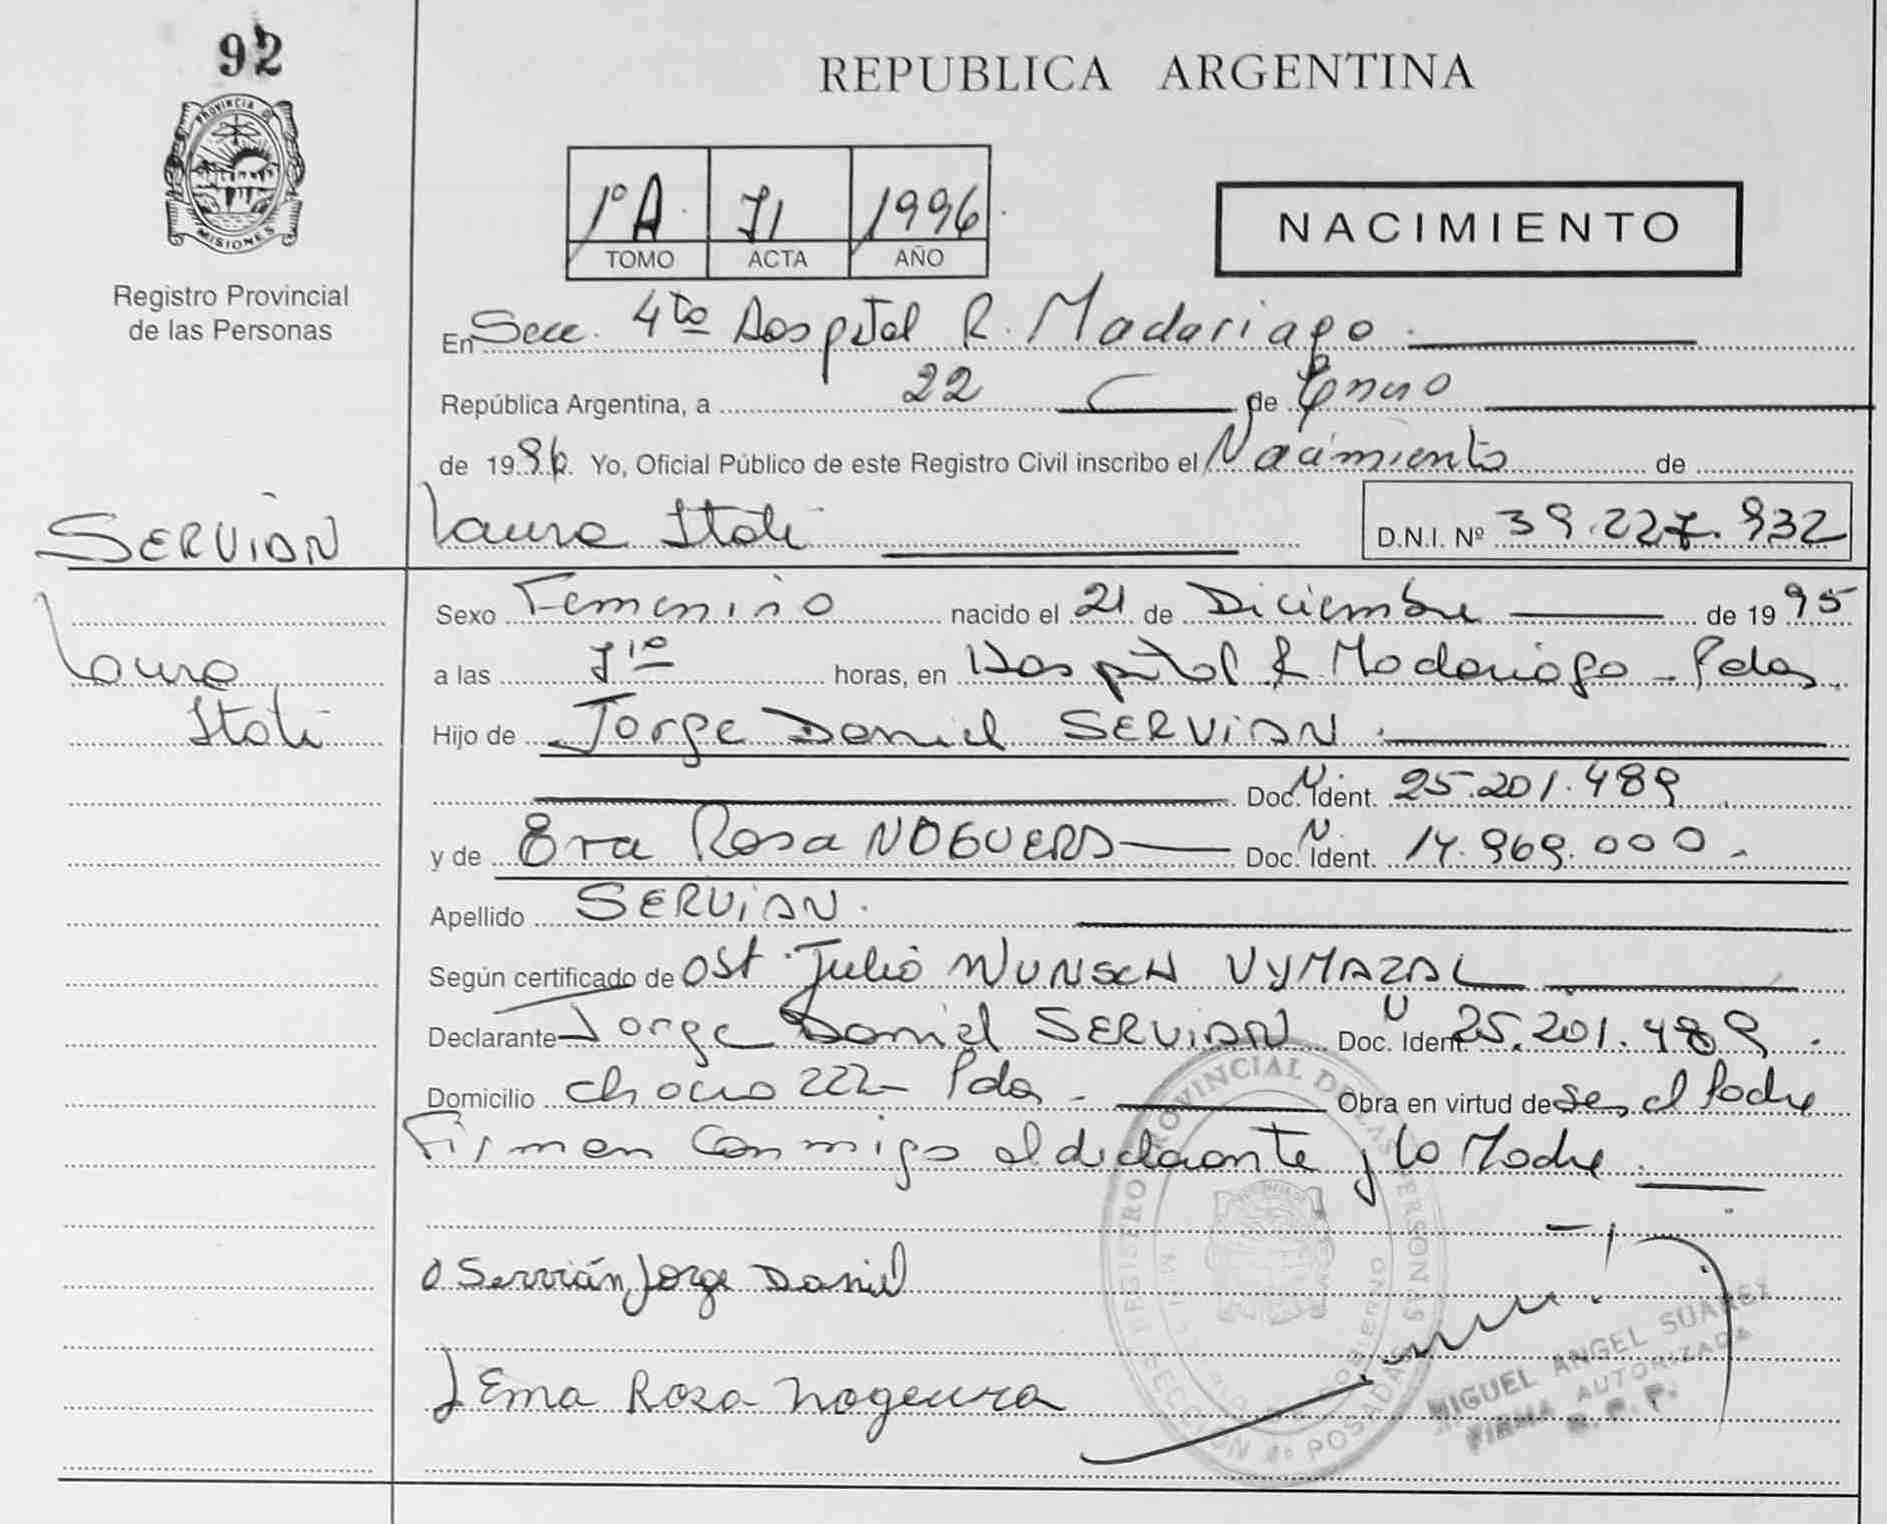 92
PROVINCIA DE
MISIONES
Registro Provincial
de las Personas
REPUBLICA ARGENTINA
1º A 71 1996
TOMO ACTA AÑO
NACIMIENTO
En Secc. 4ta Hospital R. Madariaga.
República Argentina, a 22 de Enero
de 1996. Yo, Oficial Público de este Registro Civil inscribo el Nacimiento de
SERVIAN Laura Itati D.N.I. Nº 39.227.932
Laura
Itati
Sexo Femenino nacido el 21 de Diciembre de 1995
a las 7 horas, en Hospital R Madariaga - Pdas.
Hijo de Jorge Daniel SERVIAN.
Doc. N Ident. 25.201.489
y de Ema Rosa NOGUERA Doc. N Ident. 14.969.000.
Apellido SERVIAN.
Según certificado de Ost. Julio WUNSCH VYMAZAL
Declarante Jorge Daniel SERVIAN Doc. N Ident. 25.201.489.
Domicilio 222 - Pdas. Obra en virtud de Ser el Padre
Firman Conmigo el declarante y la Madre.
Servián, Jorge Daniel
Ema Rosa Nogeura
REGISTRO PROVINCIAL DE LAS PERSONAS
SECCION 4º POSADAS
MIGUEL ANGEL SUAREZ
FIRMA AUTORIZADA
R. P. P.